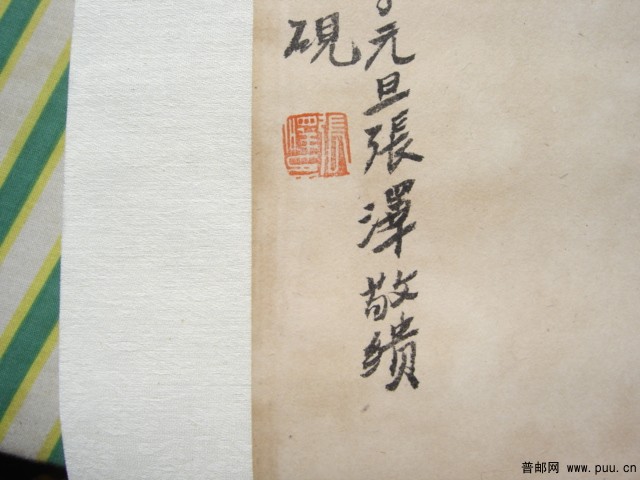 元旦張澤敬繢
硯
普邮网 www.puu.cn